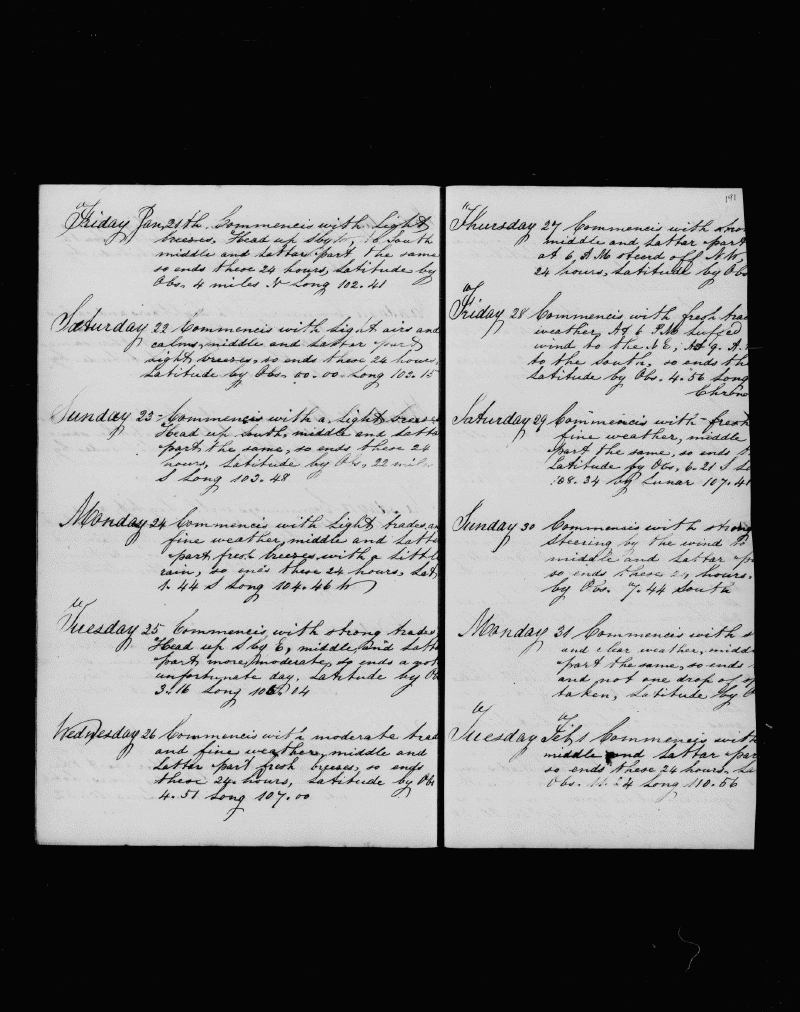 Friday Jan, 21th. Commencis with Light
breeses, Head up Sby W, to South
middle and Lattar part the same
so ends these 24 hours, Latitude by
Obs. 4 miles N Long 102.41
Saturday 22 Commencis with Light airs and
calms, middle and Lattar part
Light breeses, so ends these 24 hours,
Latitude by Obs. 00.00 Long 102.15
Sunday 23 - Commencis with a Light breeses
Head up South, middle and Latta
part, the same, so ends these 24
hours, Latitude by Obs, 22 miles
S Long 103.48
Monday 24 Commencis with Light trades, an
fine weather, middle and Latta
part, fresh breeses with a Little
rain, so ends these 24 hours, Lat
1.44 S Long 104.46 W
Tuesday 25 Commencis, with strong trades,
Head up S by E, middle and Latt
part, more moderate, so ends a not
unfortunate day. Latitude by Ob
3.16 Long 04
Wednesday 26 Commencis with moderate trad
and fine weather, middle and
Lattar part fresh breeses, so ends
these 24 hours, Latitude by Obs
4.51 Long 107.00
191
Thursday 27 Commencis with stron
middle and Lattar part
at 6, P M steard off N W,
24 hours, Latitude by Obs
Friday 28 Commencis with fresh trad
weather, At 6 P.M Luffed
wind to the N E, At 9. A.
to the south, so ends th
Latitude by Obs. 4.56 Long
Chrono
Saturday 29 Commencis with - fresh
fine weather, middle
part the same, so ends t
Latitude by Obs. 6.21 S Lo
108.34 by Lunar 107.41
Sunday 30 Commencis with strong
steering by the wind to
middle and Lattar pa
so ends these 24 hours.
by Obs. 7.44 South
Monday 31 Commencis with s
and clear weather, midd
part the same, so ends
and not one drop of
taken, Latitude by O
Tuesday Feb, 1 Commencis with
middle and Lattar par
so ends these 24 hours. La
Obs. 24 Long 110.56